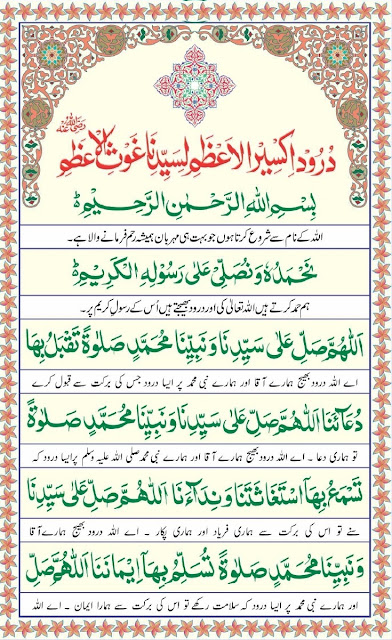 درود اکسیر الاعظم لسیدنا غوث الاعظم رضی اللہ عنہ
بِسْمِ اللهِ الرَّحْمٰنِ الرَّحِيْمِ ط
اللہ کے نام سے شروع کرتا ہوں جو بہت ہی مہربان ہمیشہ رحم فرمانے والا ہے۔
نَحْمَدُهٗ وَنُصَلِّيْ عَلٰى رَسُوْلِهِ الْكَرِيْمِ ط
ہم حمد کرتے ہیں اللہ تعالیٰ کی اور درود بھیجتے ہیں اُس کے رسولِ کریم پر۔
اَللّٰهُمَّ صَلِّ عَلٰى سَيِّدِنَا وَنَبِيِّنَا مُحَمَّدٍ صَلٰوةً تَقْبَلُ بِهَا
اے اللہ درود بھیج ہمارے آقا اور ہمارے نبی محمد پر ایسا درود جس کی برکت سے قبول کرے
دُعَآئَنَا اَللّٰهُمَّ صَلِّ عَلٰى سَيِّدِنَا وَنَبِيِّنَا مُحَمَّدٍ صَلٰوةً
تو ہماری دعا ۔ اے اللہ درود بھیج ہمارے آقا اور ہمارے نبی محمد صلی اللہ علیہ وسلم پر ایسا درود کہ
تَسْمَعُ بِهَا اسْتِغَاثَتَنَا وَنِدَآءَنَا اَللّٰهُمَّ صَلِّ عَلٰى سَيِّدِنَا
سنے تو اس کی برکت سے ہماری فریاد اور ہماری پکار ۔ اے اللہ درود بھیج ہمارے آقا
وَنَبِيِّنَا مُحَمَّدٍ صَلٰوةً تُسَلِّمُ بِهَا اِيْمَانَنَا اَللّٰهُمَّ صَلِّ
اور ہمارے نبی محمد پر ایسا درود کہ سلامت رکھے تو اس کی برکت سے ہمارا ایمان ۔ اے اللہ